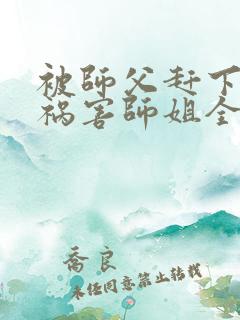 被師父赶下
祸害師姐全
乔良
未经同意禁止转载